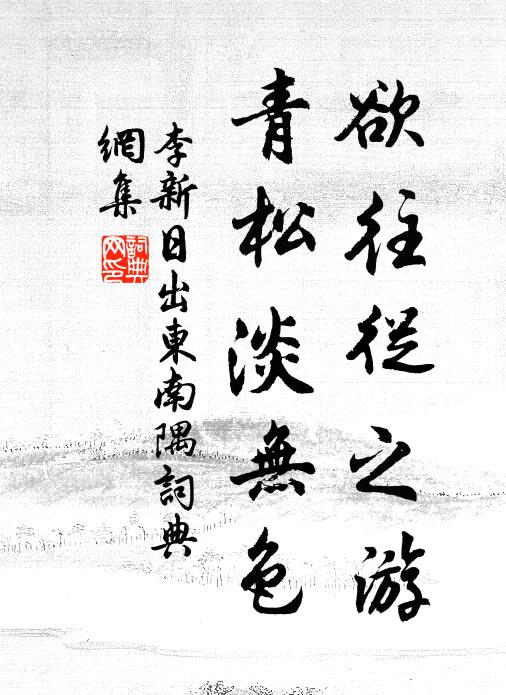 欲往從之游
青松淡無色
李新日出東南隅詞典
網集
詞典
网印